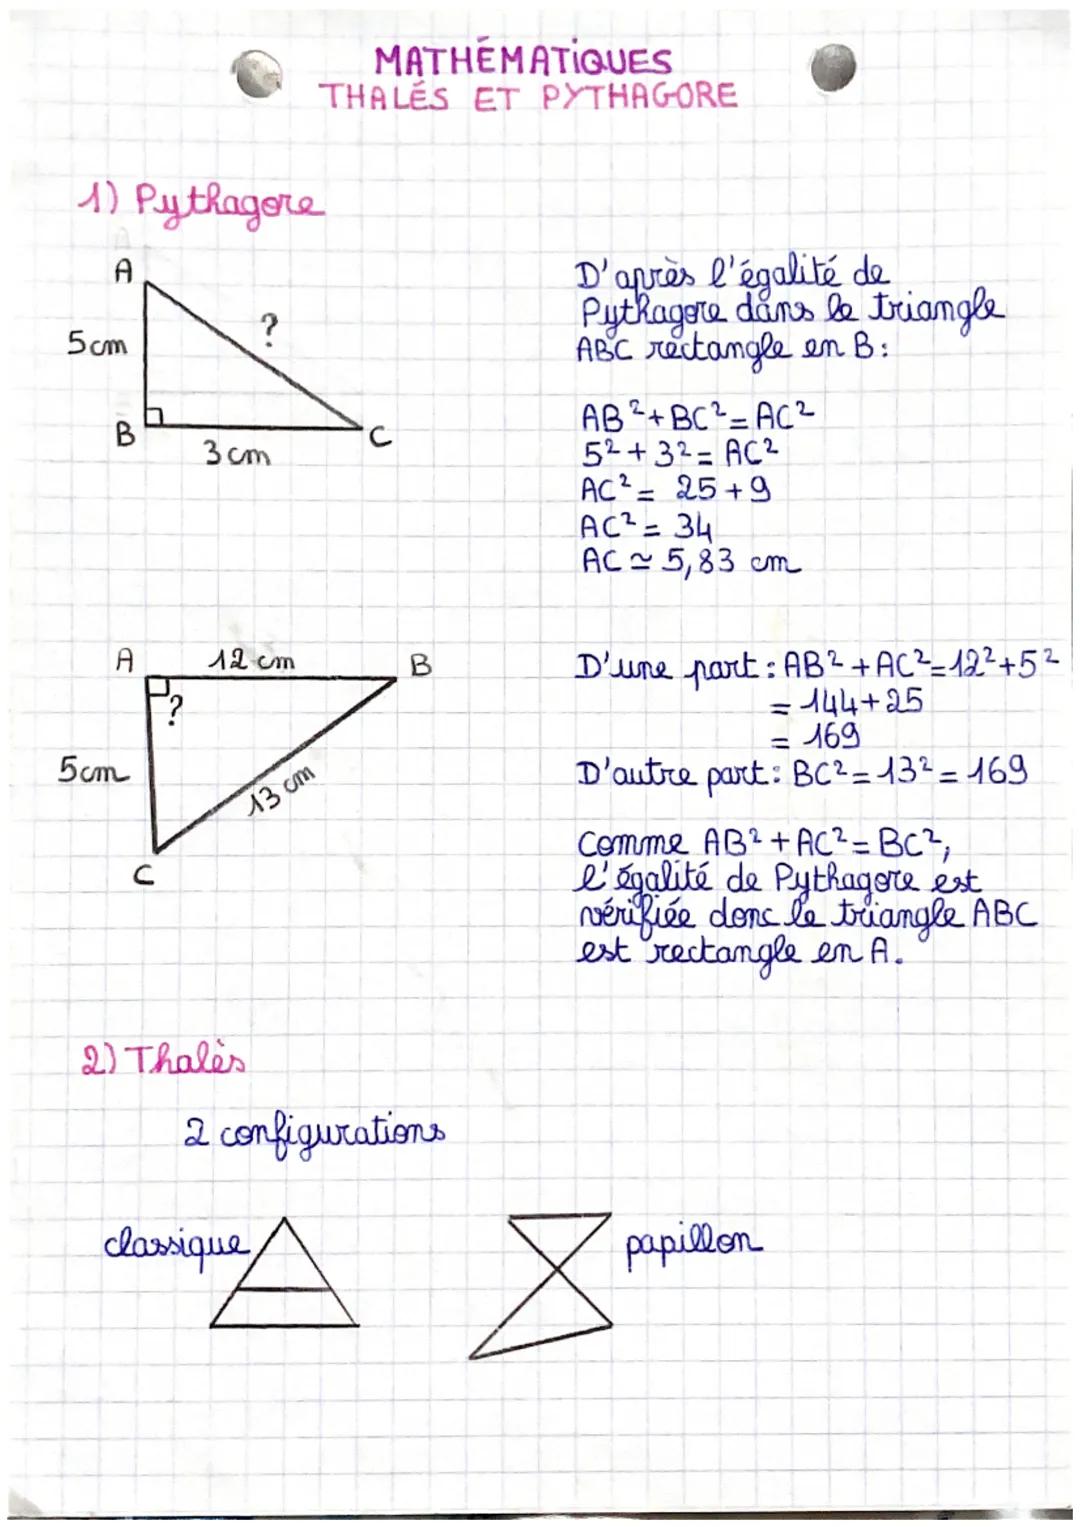 MATHÉMATIQUES
THALÉS ET PYTHAGORE
1) Pythagore
A
?
5cm
B
3 cm
C
D'après l'égalité de
Pythagore dans le triangle
ABC rectangle en B:
AB²+BC²=AC²
5²+3²=AC²
AC²= 25+9
AC²= 34
AC ≃ 5,83 cm
A
12 cm
B
?
5cm
13 cm
C
D'une part: AB²+AC²=12²+5²
= 144+25
= 169
D'autre part: BC²=13²=169
Comme AB²+AC²=BC²,
l'égalité de Pythagore est
vérifiée donc le triangle ABC
est rectangle en A.
2) Thalès
2 configurations
classique
papillon